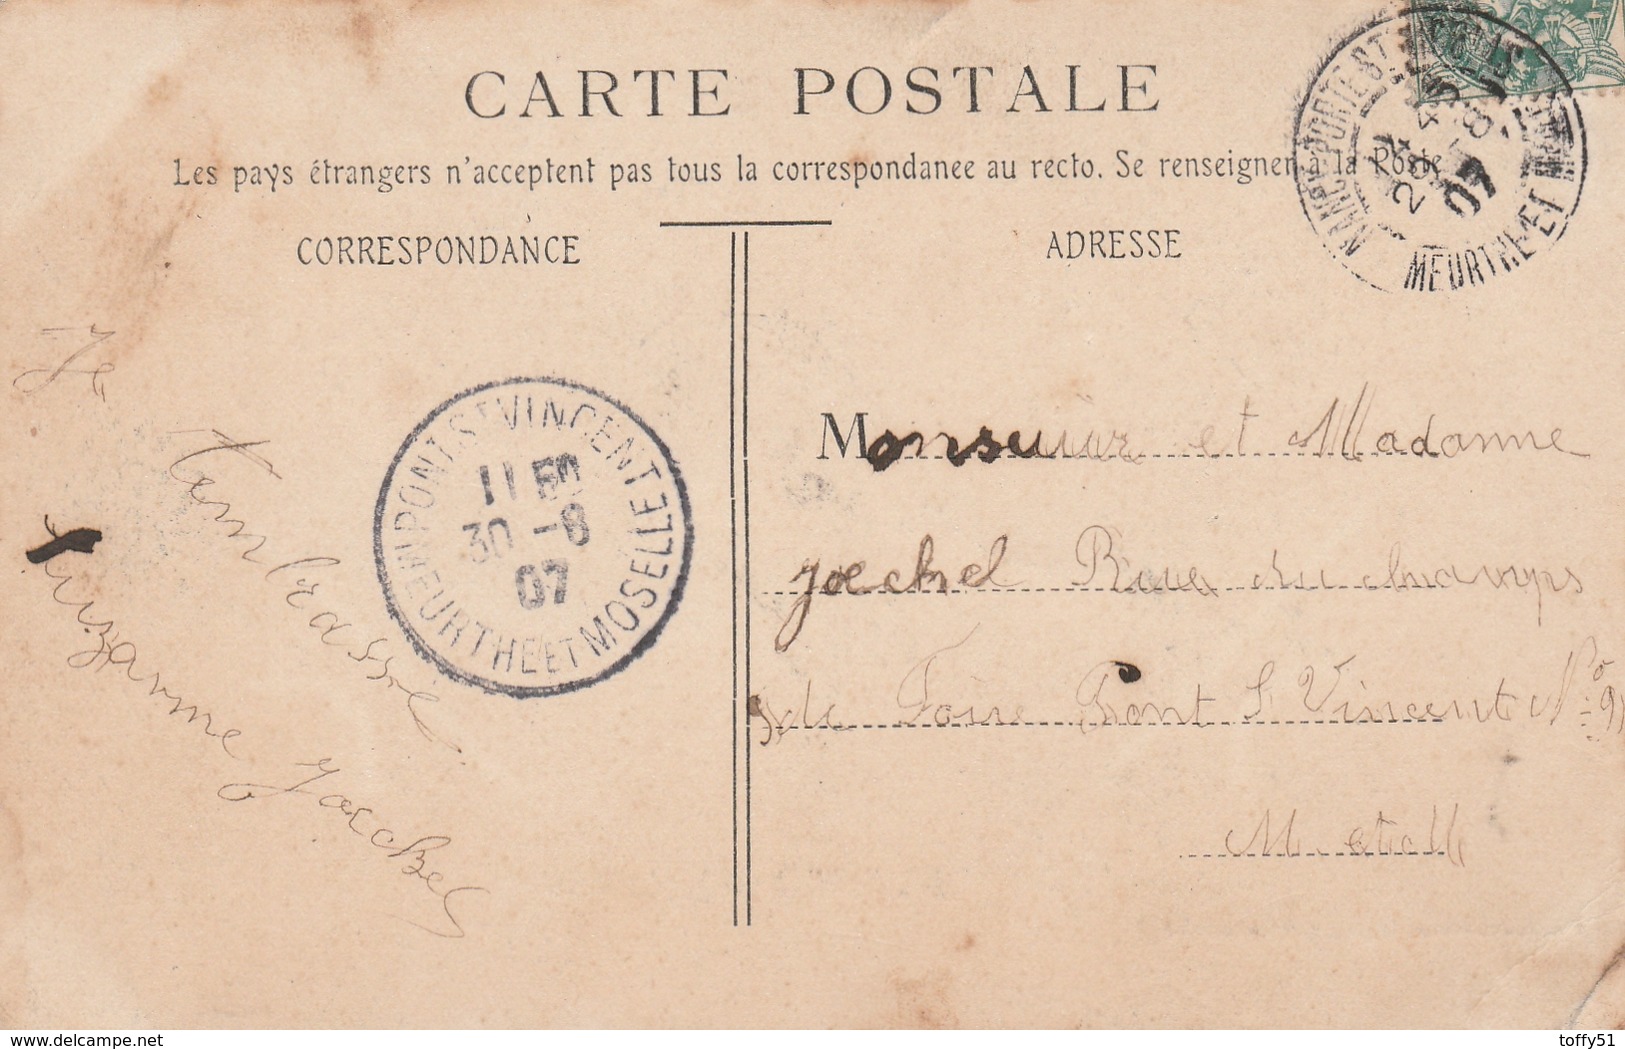 CARTE POSTALE
Les pays étrangers n'acceptent pas tous la correspondanee au recto. Se renseigner à la Poste
CORRESPONDANCE
ADRESSE
NANCY-PORTE-ST
29 8
07
MEURTHE-ET
Je
tembrasse
Suzanne Joechel
PONT ST VINCENT
11 50
30 -8
07
MEURTHE ET MOSELLE
Monsieuur et Madanme
Joechel Rue du champs
de Foire Pont St Vincent No 9
M. et M
www.delcampe.net
toffy51